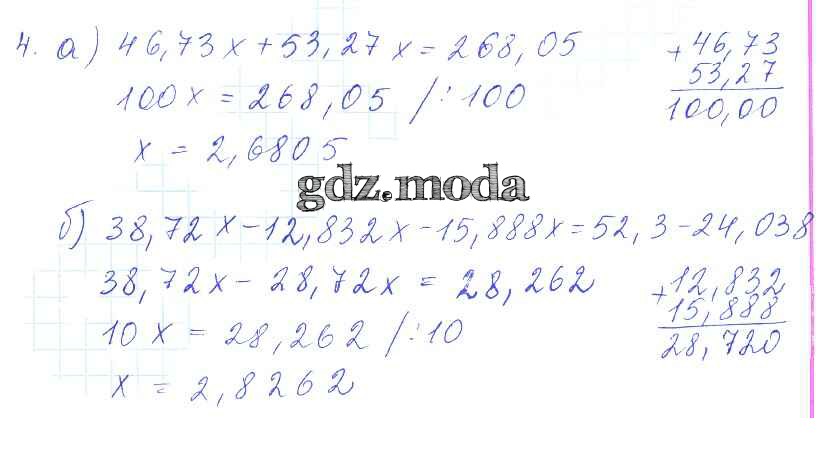 4. а) 46,73 x + 53,27 x = 268,05
100 x = 268,05 /:100
x = 2,6805
+ 46,73
53,27
100,00
gdz.moda
б) 38,72 x - 12,832 x - 15,888 x = 52,3 - 24,038
38,72 x - 28,72 x = 28,262
10 x = 28,262 /:10
x = 2,8262
+ 12,832
15,888
28,720